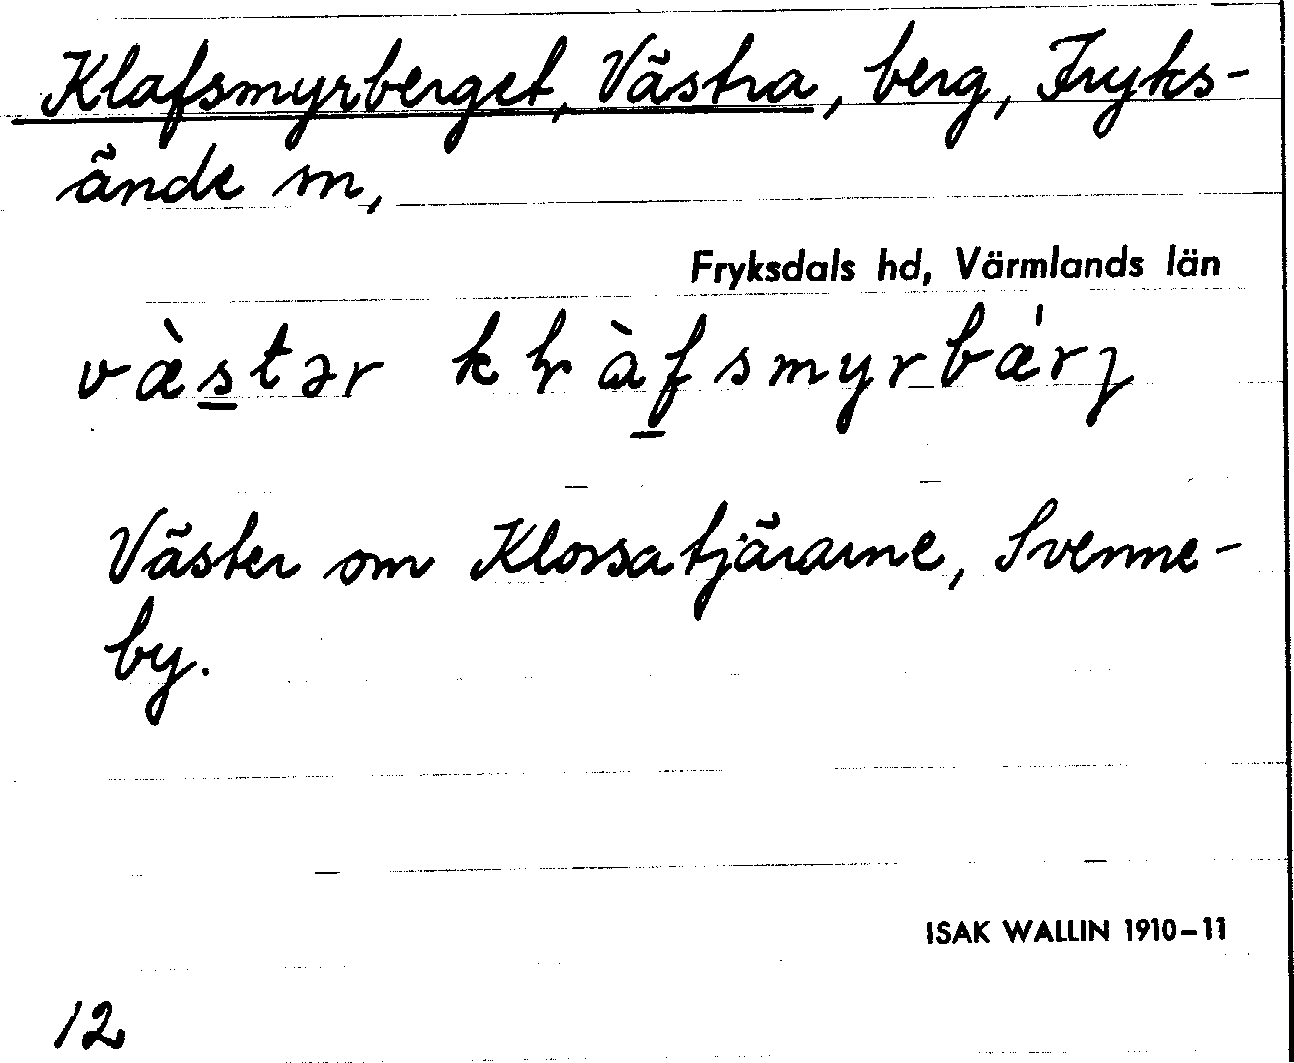 Klafsmyrberget, Västra, berg, Fryks-
ände sn,
Fryksdals hd, Värmlands län
væ̀stər kɫàfsmyrbǽrj
Väster om Klossatjärarne, Svenne-
by.
ISAK WALLIN 1910–11
12